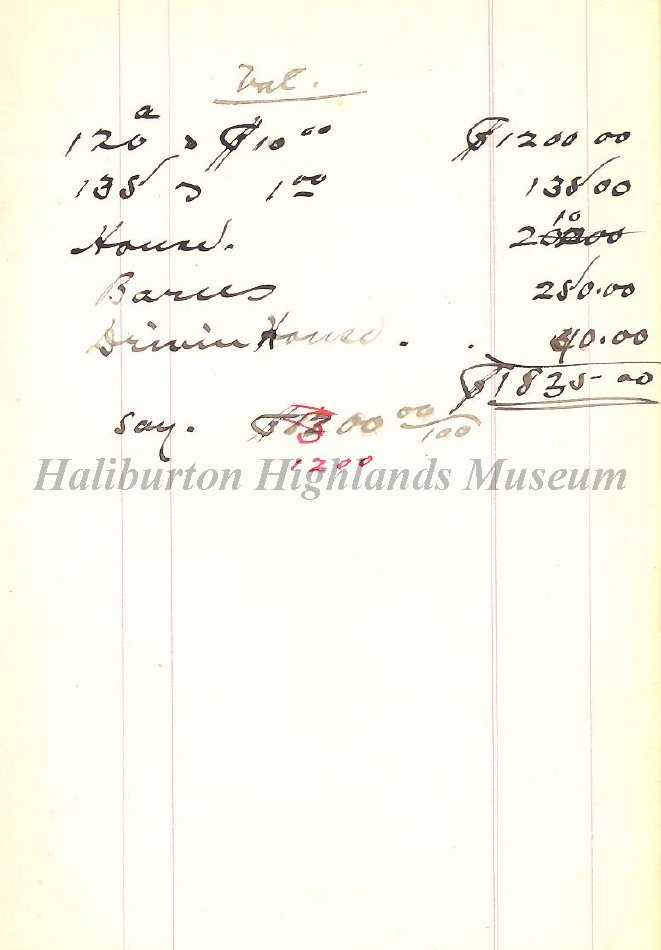 Val.
120 a @ $10 00 $1200 00
135 @ 1 00 135 00
House. 200 00
10
Barns 250.00
Drivin House. 40.00
$1835.00
say. $1300 00/100
1200
Haliburton Highlands Museum